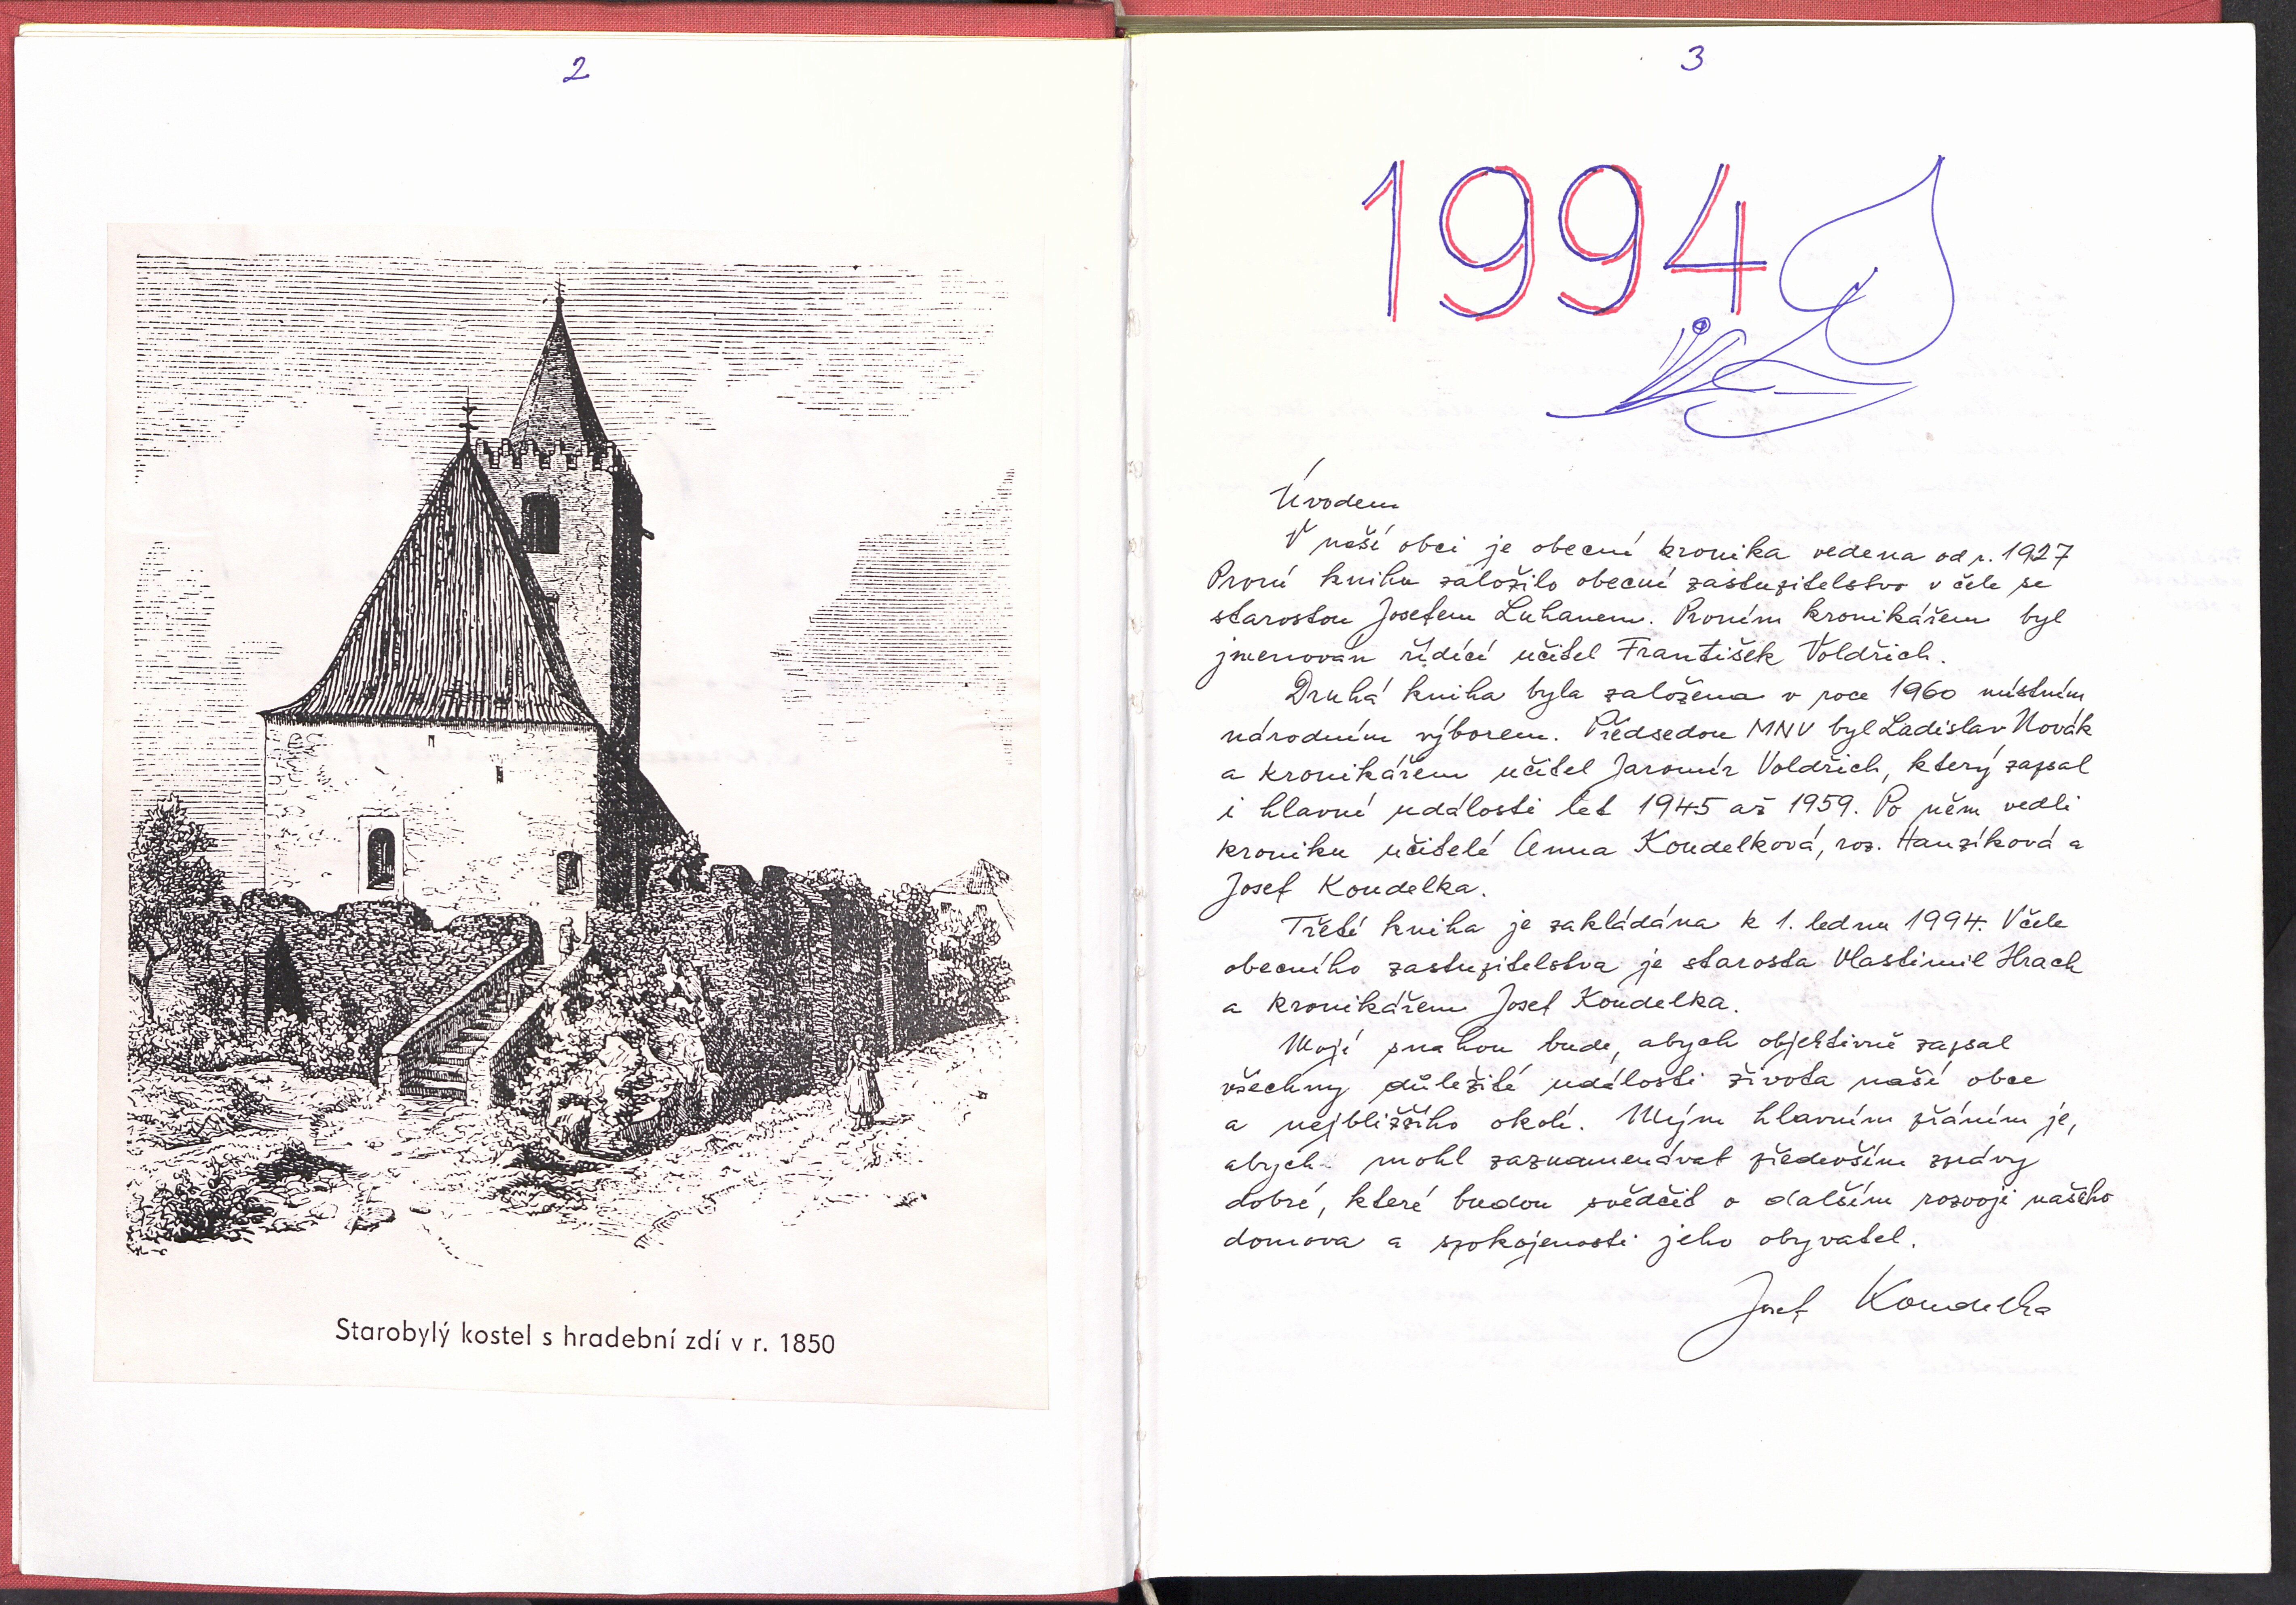 2
Starobylý kostel s hradební zdí v r. 1850
3
1994
Úvodem
V naší obci je obecní kronika vedena od r. 1927
První knihu založilo obecné zastupitelstvo v čele se
starostou Josefem Luhanem. Prvním kronikářem byl
jmenován řídící učitel František Voldřich.
Druhá kniha byla založena v roce 1960 místním
národním výborem. Předsedou MNV byl Ladislav Novák
a kronikářem učitel Jaromír Voldřich, který zapsal
i hlavní události let 1945 až 1959. Po něm vedli
kroniku učitelé Anna Koudelková, roz. Hanzíková a
Josef Koudelka.
Třetí kniha je zakládána k 1. lednu 1994. V čele
obecního zastupitelstva je starosta Vlastimil Hrach
a kronikářem Josef Koudelka.
Mojí snahou bude, abych objektivně zapsal
všechny důležité události života naší obce
a nejbližšího okolí. Mým hlavním přáním je,
abych mohl zaznamenávat především zprávy
dobré, které budou svědčit o dalším rozvoji našeho
domova a spokojenosti jeho obyvatel.
Josef Koudelka